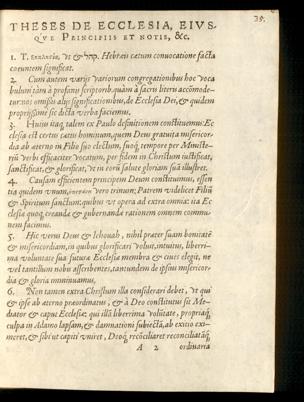 39.
THESES DE ECCLESIA, EIVS-
QVE PRINCIPIIS ET NOTIS, &c.
1. T. ἐκκλησία, vt & קהל Hebræis cætum conuocatione facta
coeuntem significat.
2. Cum autem varijs variorum congregationibus hoc voca
bulum tàm à profanis scriptorib. quàm à sacris literis accōmode-
tur: nos omißis alijs significationibus, de Ecclesia Dei, & quidem
propriißimè sic dicta verba faciemus.
3. Hanc itaq, talem ex Paulo definitionem constituemus: Ec
clesia est certus cætus hominum, quem Deus gratuita misericor-
dia ab æterno in Filio suo electum, suoq, tempore per Ministe-
riū verbi efficaciter vocatum, per fidem in Christum iustificat,
sanctificat, & glorificat, vt in eorū salute gloriam suā illustret.
4. Causam efficientem principem Deum constituimus, essen
tia quidem vnum, verò trinum; Patrem videlicet Filiū
& Spiritum sanctum: quibus vt opera ad extra omnia: ita Ec
clesia quoq, creanda & gubernanda rationem omnem commu-
nem facimus.
5. Hic verus Deus & Iehouah, nihil præter suam bonitatē
& misericordiam, in quibus glorificari voluit, intuitus, liberri-
ma voluntate sua futura Ecclesiæ membra & ciues elegit, ne
vel tantillum nobu asscribentes, tantundem de ipsius misericor-
dia & gloria imminuamus,
6. Non tamen extra Christum illa considerari debet, Vt qui
& ipse ab æterno præordinatus, & à Deo constitutus sit Me-
diator & caput Ecclesiæ qui illā liberrima volūtate, propriaq,
culpa in Adamo lapsam, & damnationi subiectā, ab exitio exi-
meret, & sibi vt capiti vniret, Deoq, recōciliaret reconciliatāq,
A 2 ordinaria